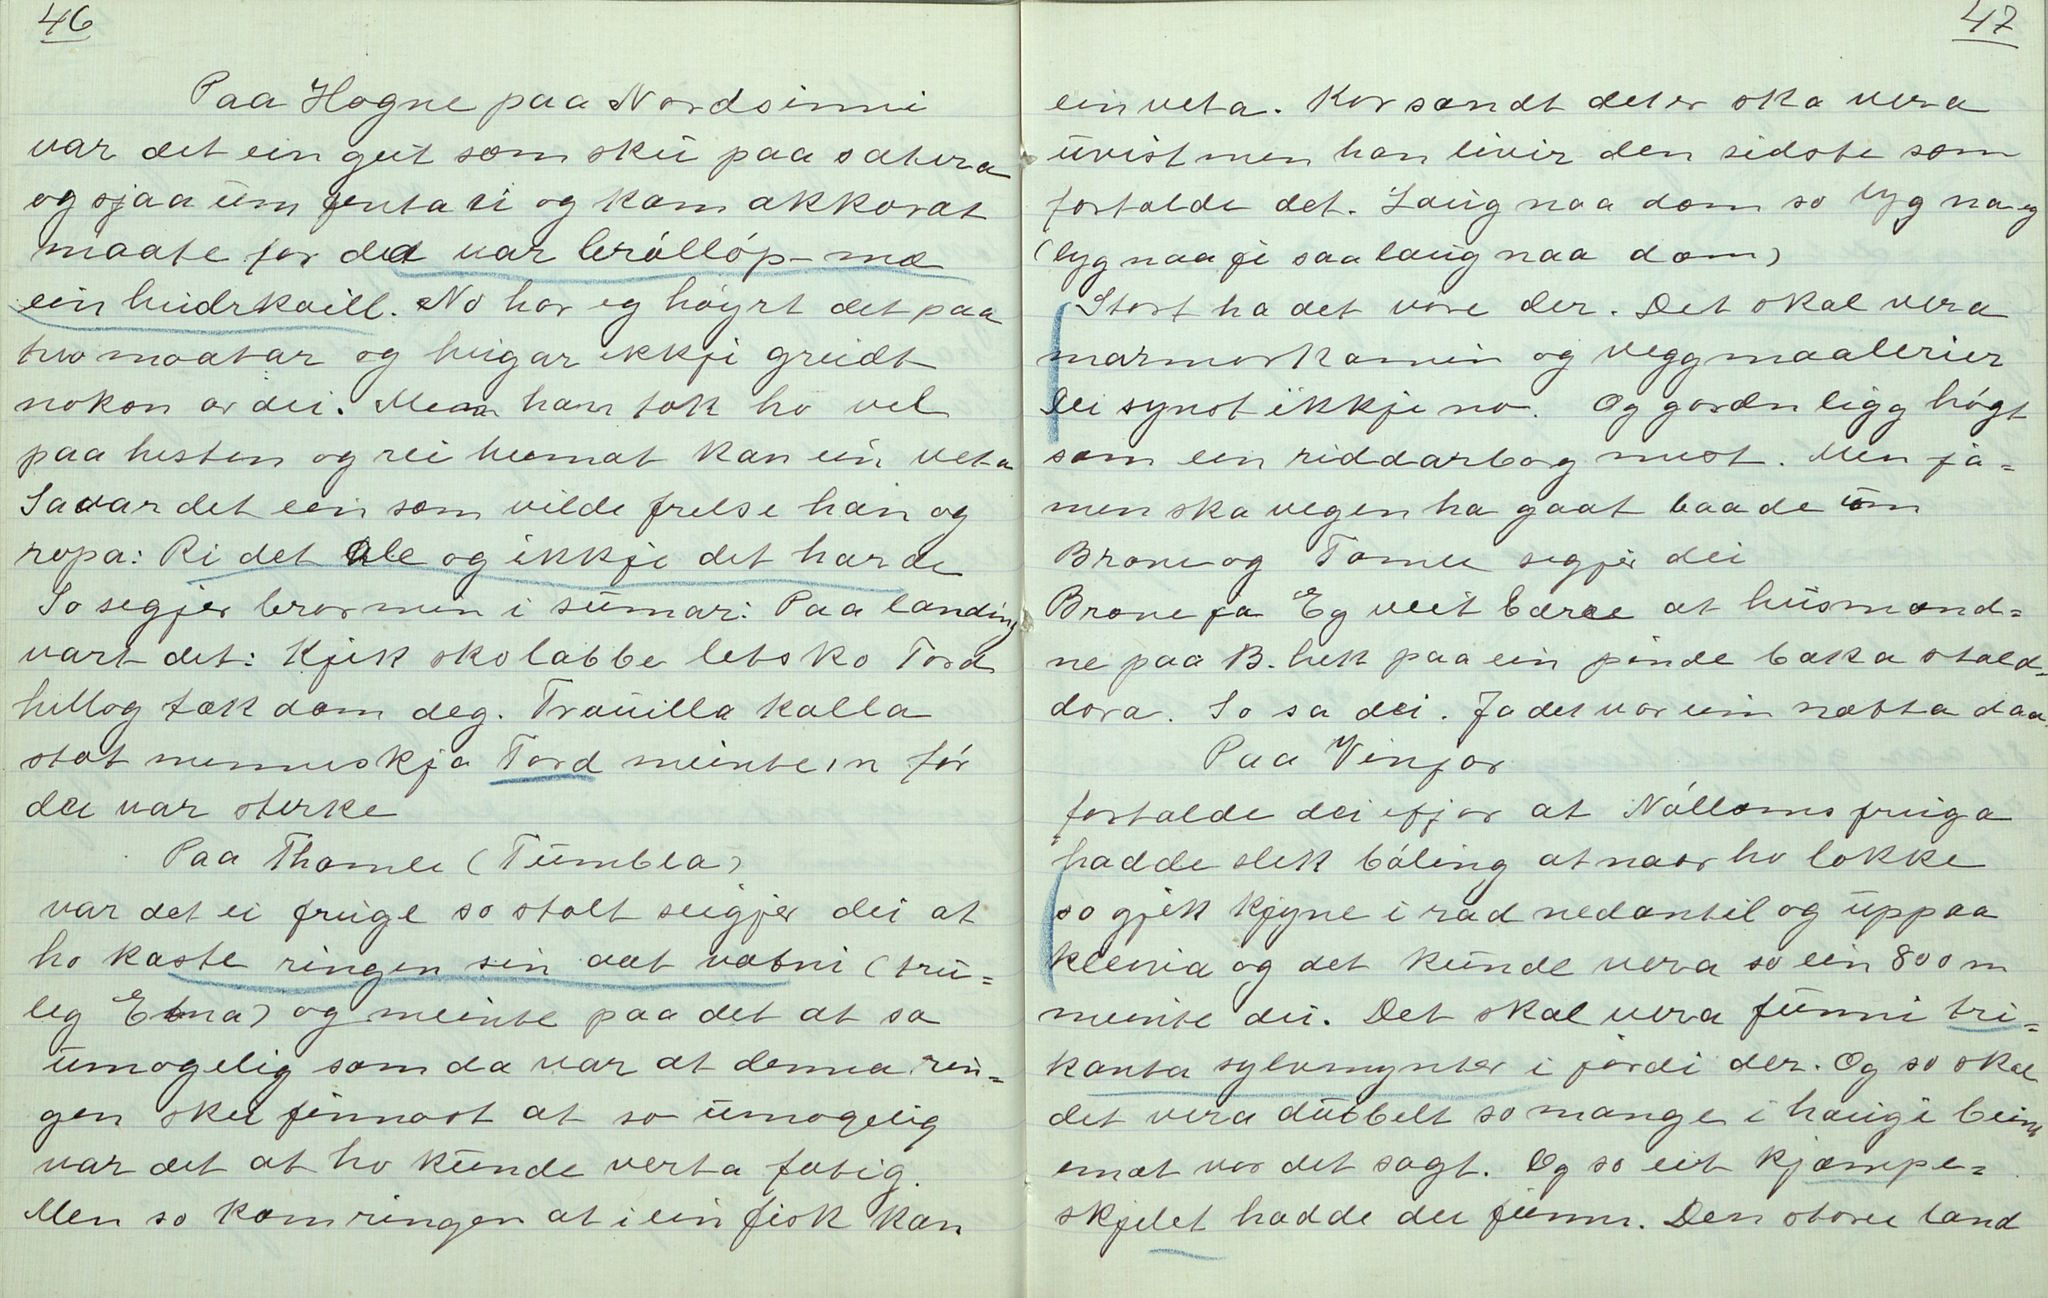 46
Paa Hogne paa Nordsinni
var det ein gut som sku paa sætera
og sjaa um jenta si og kom akkorat
maate for det var bróllóp mæ
ein huldrkaill. No har eg høyrt det paa
two maatar og hugar ikkji greidt
nokon av dei. Men han tok ho vel
paa hesten og rei heimat kan ein veta
Sa var det ein som vilde frelse han og
ropa: Ri det ble og ikkje det harde
So segjer bror min i sumar: Paa landing
vart det: Kjik skolabbe letsko Tord
hellog tæk dom deg. Trauilla kalla
slot menneskja Tord meinte 'n før
dei var sterke
Paa Thomle (Tumbla)
var det ei fruge so stolt seigjer dei at
ho kaste ringen sin aat vatni (tru=
leg Etna) og meinte paa det at sa
umogelig som da var at denna rin=
gen sku finnast at so umogelig
var det at ho kunde verta fatig.
Men so kom ringen at i ein fisk kan
47
ein veta. Kor sandt det er ska vera
uvist men han liver den sidste som
fortalde det. Laug naa dom so lyg na eg
(lyg naa je saa laug naa dom)
Stort ha det vore der. Det skal vera
marmorkamin og veggmaalerier
Dei synst ikkje no. Og gardn ligg högt
som ein riddarborg mest. Men ja=
men ska vegen ha gaat baade um
Brone og Tomle segjer dei
Brone ja Eg veit bære at husmænd=
ne paa B. hek paa ein pinde baka stald=
dora. So sa dei. Ja det var ein nætta daa
Paa Vinjar
fortalde dei ifjor at Nólloms fruga
hadde slik bóling at naar ho lokke
so gjek kjyne i rad nedantil og uppaa
kleiva og det kunde vera so ein 800 m
meinte dei. Det skal vera funni tri=
kanta sylvmynter i jordi der. Og so skal
det vera dubbelt so mange i haugi beint
imot var det sagt. Og so eit kjæmpe=
skjelet hadde dei funni. Den store land